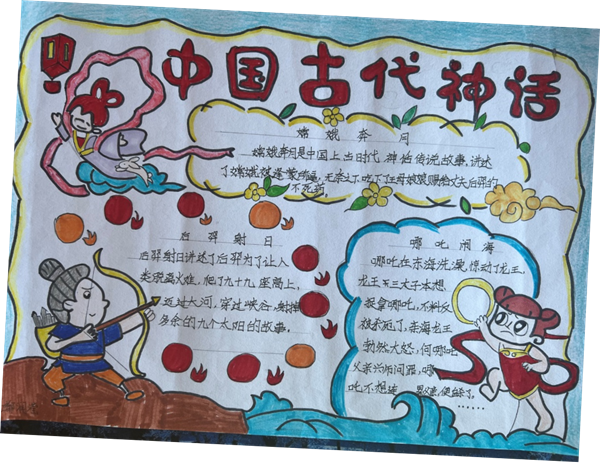 中国古代神话
嫦娥奔月
嫦娥奔月是中国上古时代神话传说故事,讲述
了嫦娥被逢蒙所逼,无奈之下,吃下了王母娘娘赐给丈夫后羿的
不死药
后羿射日
后羿射日讲述了后羿为了让人
类脱离火难,爬了九十九座高山,
迈过大河,穿过峡谷,射掉
多余的九个太阳的故事。
哪吒闹海
哪吒在东海洗澡,惊动了龙王,
龙王三太子本想
捉拿哪吒,不料反
被打死了,东海龙王
勃然大怒,向哪吒
父亲兴师问罪,哪
吒不想连 便 了,
......